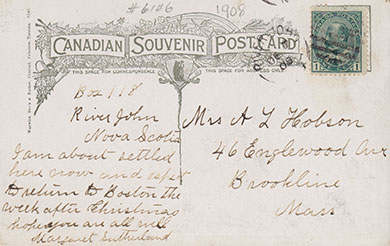 #6106 1908
CANADIAN SOUVENIR POST CARD
THIS SPACE FOR CORRESPONDENCE
THIS SPACE FOR ADDRESS ONLY
Box 118
River John
Nova Scotia
I am about settled
here now and expet
to return to Boston the
week after Christmas
hope you are all well
Margaret Sutherland
Mrs A L Hobson
46 Englewood Ave
Brookline
Mass
1 1